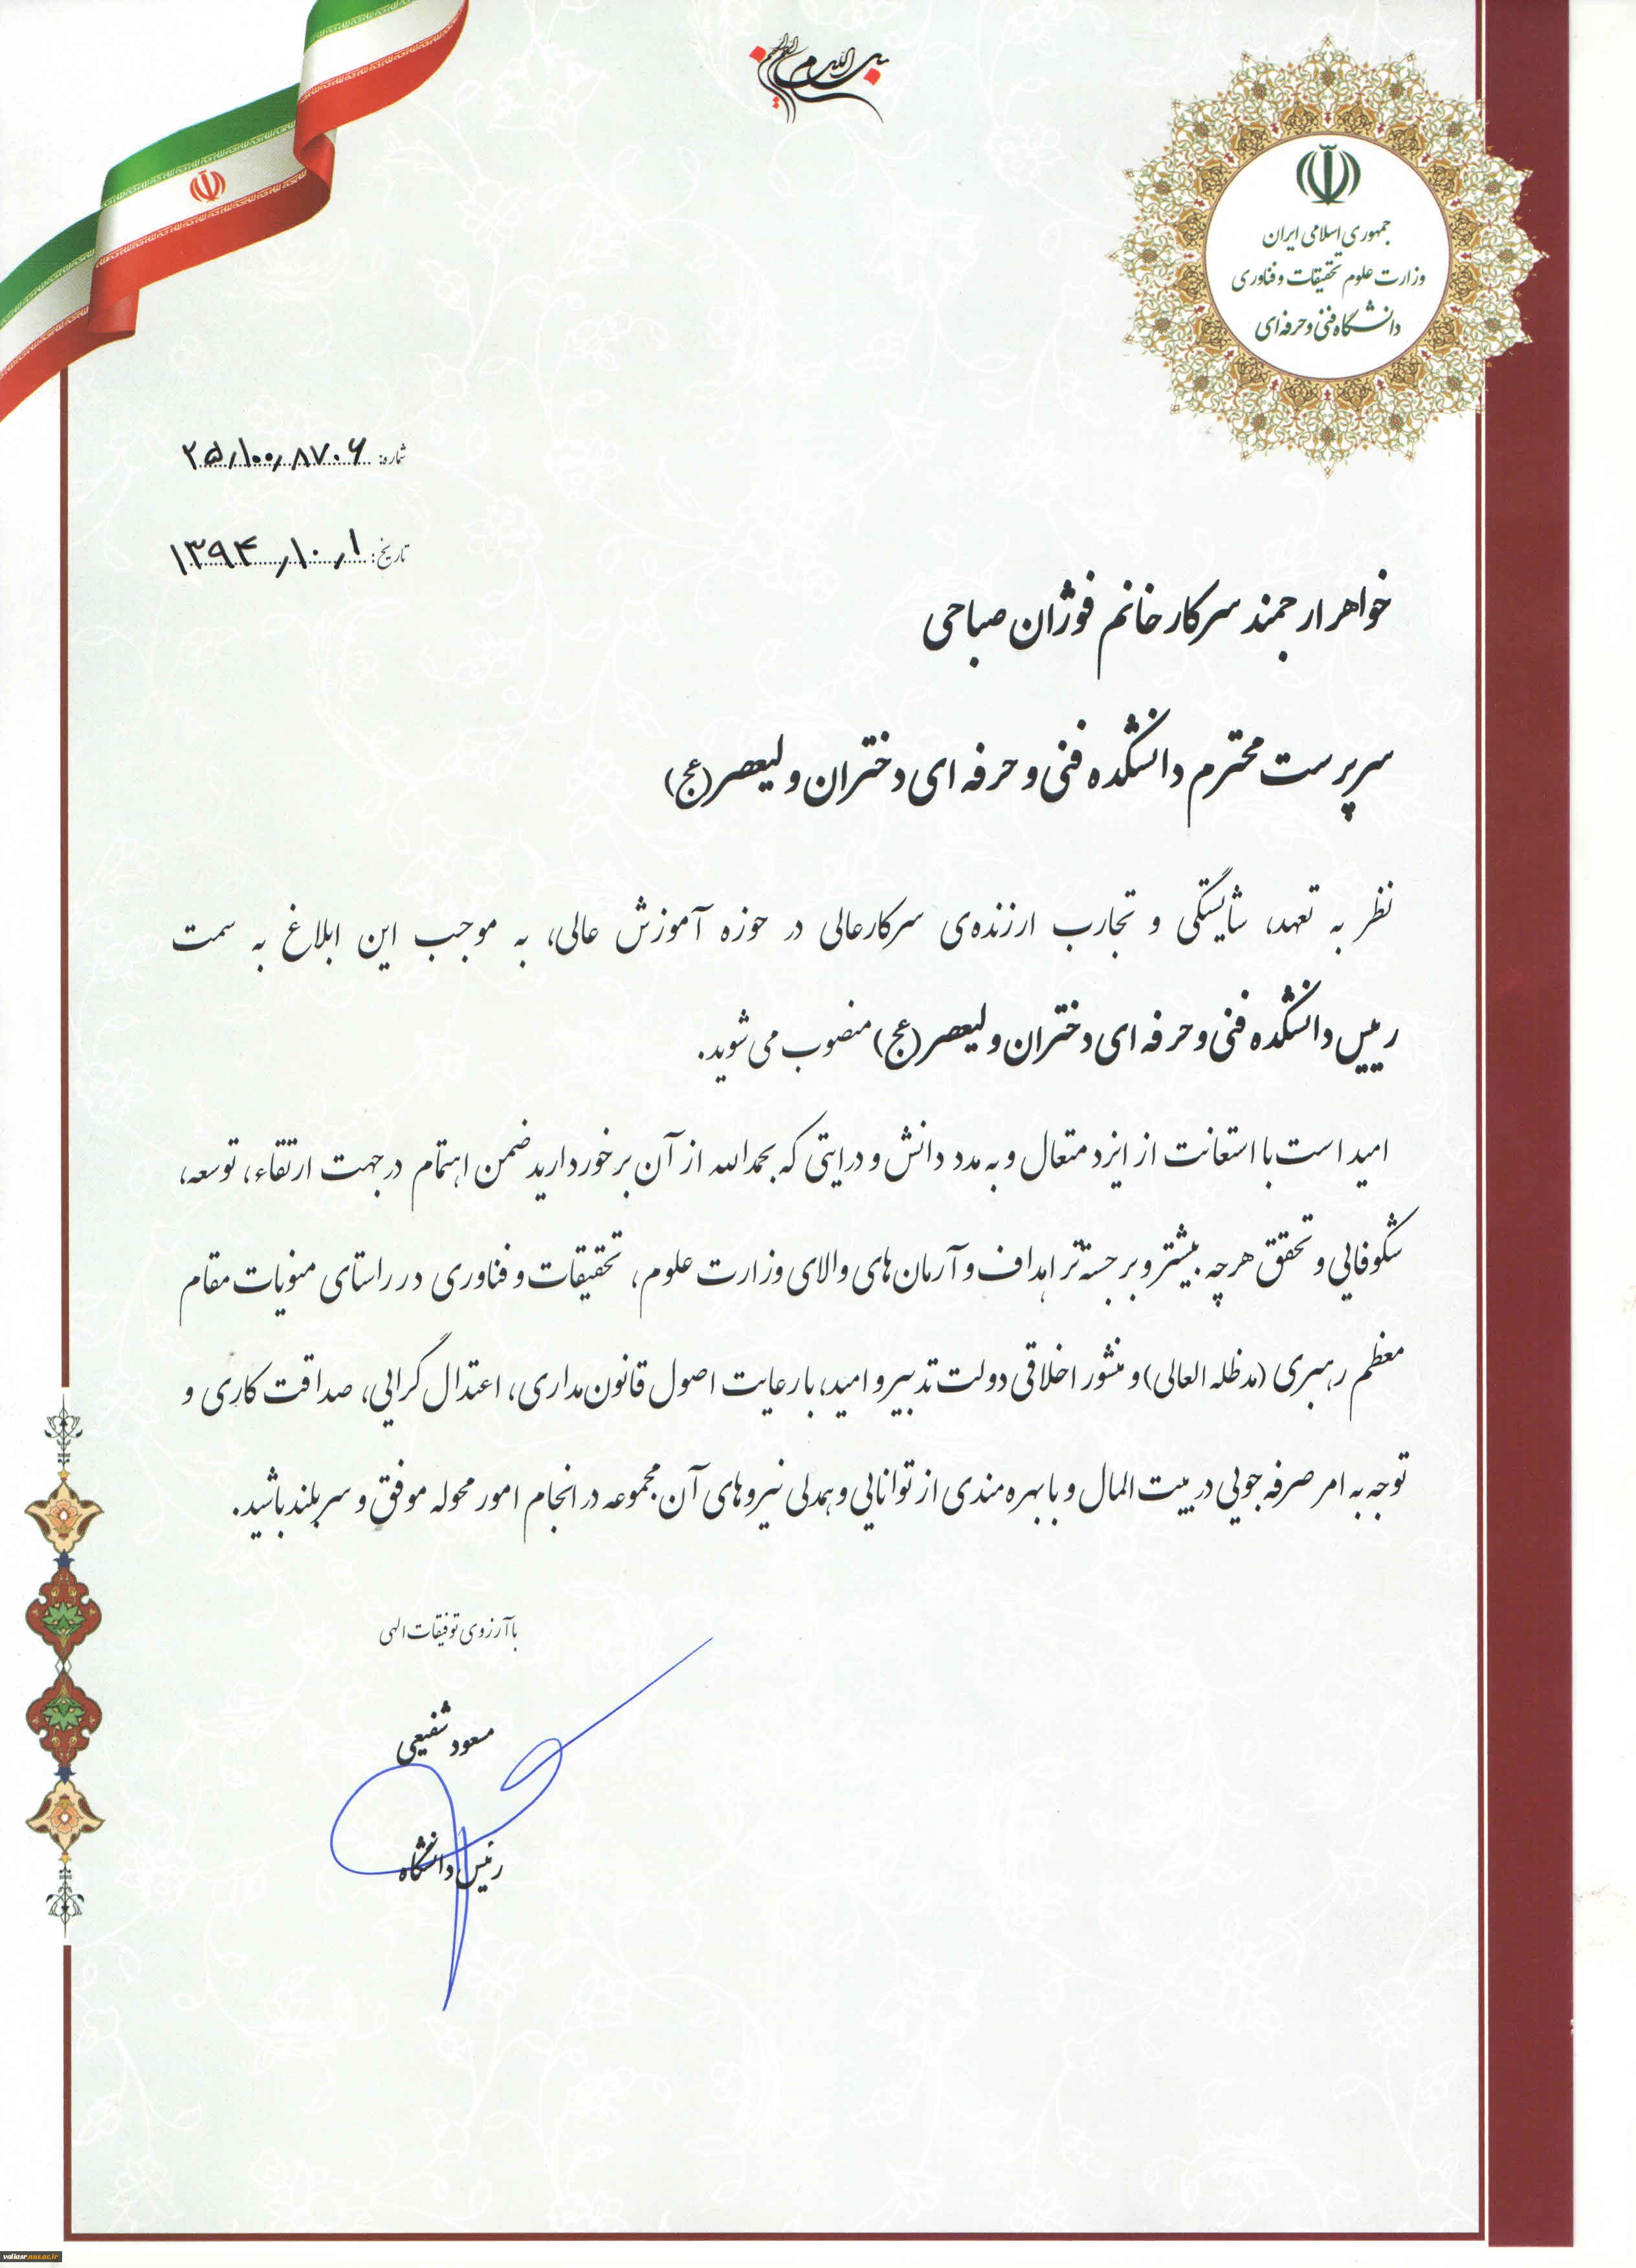 بسم الله الرحمن الرحیم
جمهوری اسلامی ایران
وزارت علوم تحقیقات و فناوری
دانشگاه فنی و حرفه‌ای
شماره: ۲۵/۱۰۰/۸۷۰۶
تاریخ: ۱۳۹۴/۱۰/۱
خواهر ارجمند سرکار خانم فوژان صباحی
سرپرست محترم دانشکده فنی و حرفه ای دختران ولیعصر(عج)
نظر به تعهد، شایستگی و تجارب ارزنده‌ی سرکارعالی در حوزه آموزش عالی، به موجب این ابلاغ به سمت
رییس دانشکده فنی و حرفه ای دختران ولیعصر(عج) منصوب می شوید.
امید است با استعانت از ایزد متعال و به مدد دانش و درایتی که بحمدالله از آن برخوردارید ضمن اهتمام در جهت ارتقاء، توسعه،
شکوفایی و تحقق هرچه بیشتر و برجسته‌تر اهداف و آرمان‌های والای وزارت علوم، تحقیقات و فناوری در راستای منویات مقام
معظم رهبری (مدظله العالی) و منشور اخلاقی دولت تدبیر و امید، با رعایت اصول قانون‌مداری، اعتدال گرایی، صداقت کاری و
توجه به امر صرفه جویی در بیت المال و با بهره مندی از توانایی و همدلی نیروهای آن مجموعه در انجام امور محوله موفق و سربلند باشید.
با آرزوی توفیقات الهی
مسعود شفیعی
رئیس دانشگاه
valiasr.aus.ac.ir